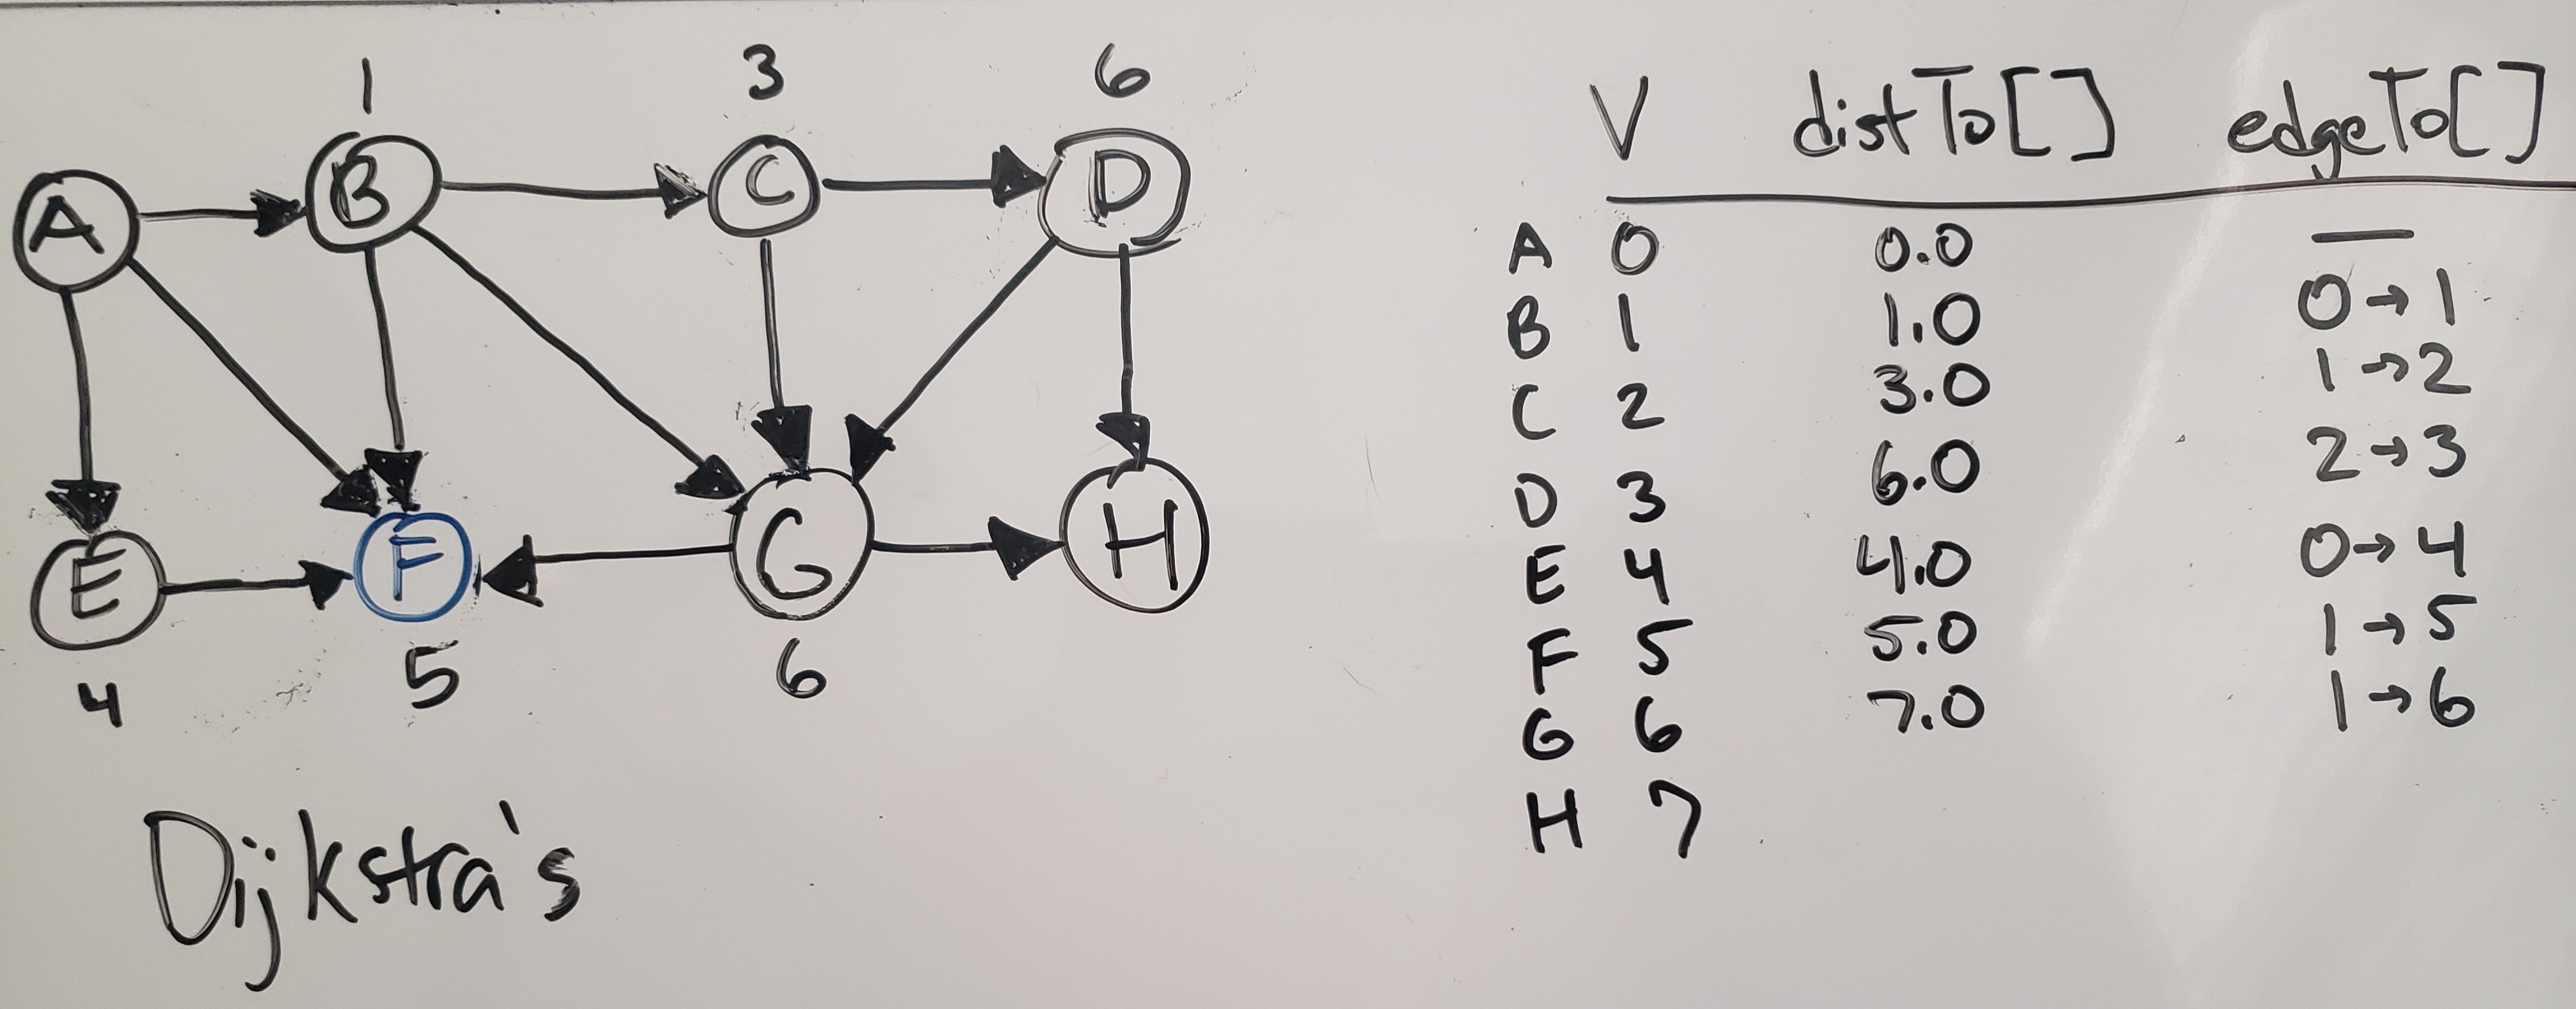 1 3 6
A B C D
E F G H
4 5 6
Dijkstra's
V distTo[] edgeTo[]
A 0 0.0 —
B 1 1.0 0→1
C 2 3.0 1→2
D 3 6.0 2→3
E 4 4.0 0→4
F 5 5.0 1→5
G 6 7.0 1→6
H 7